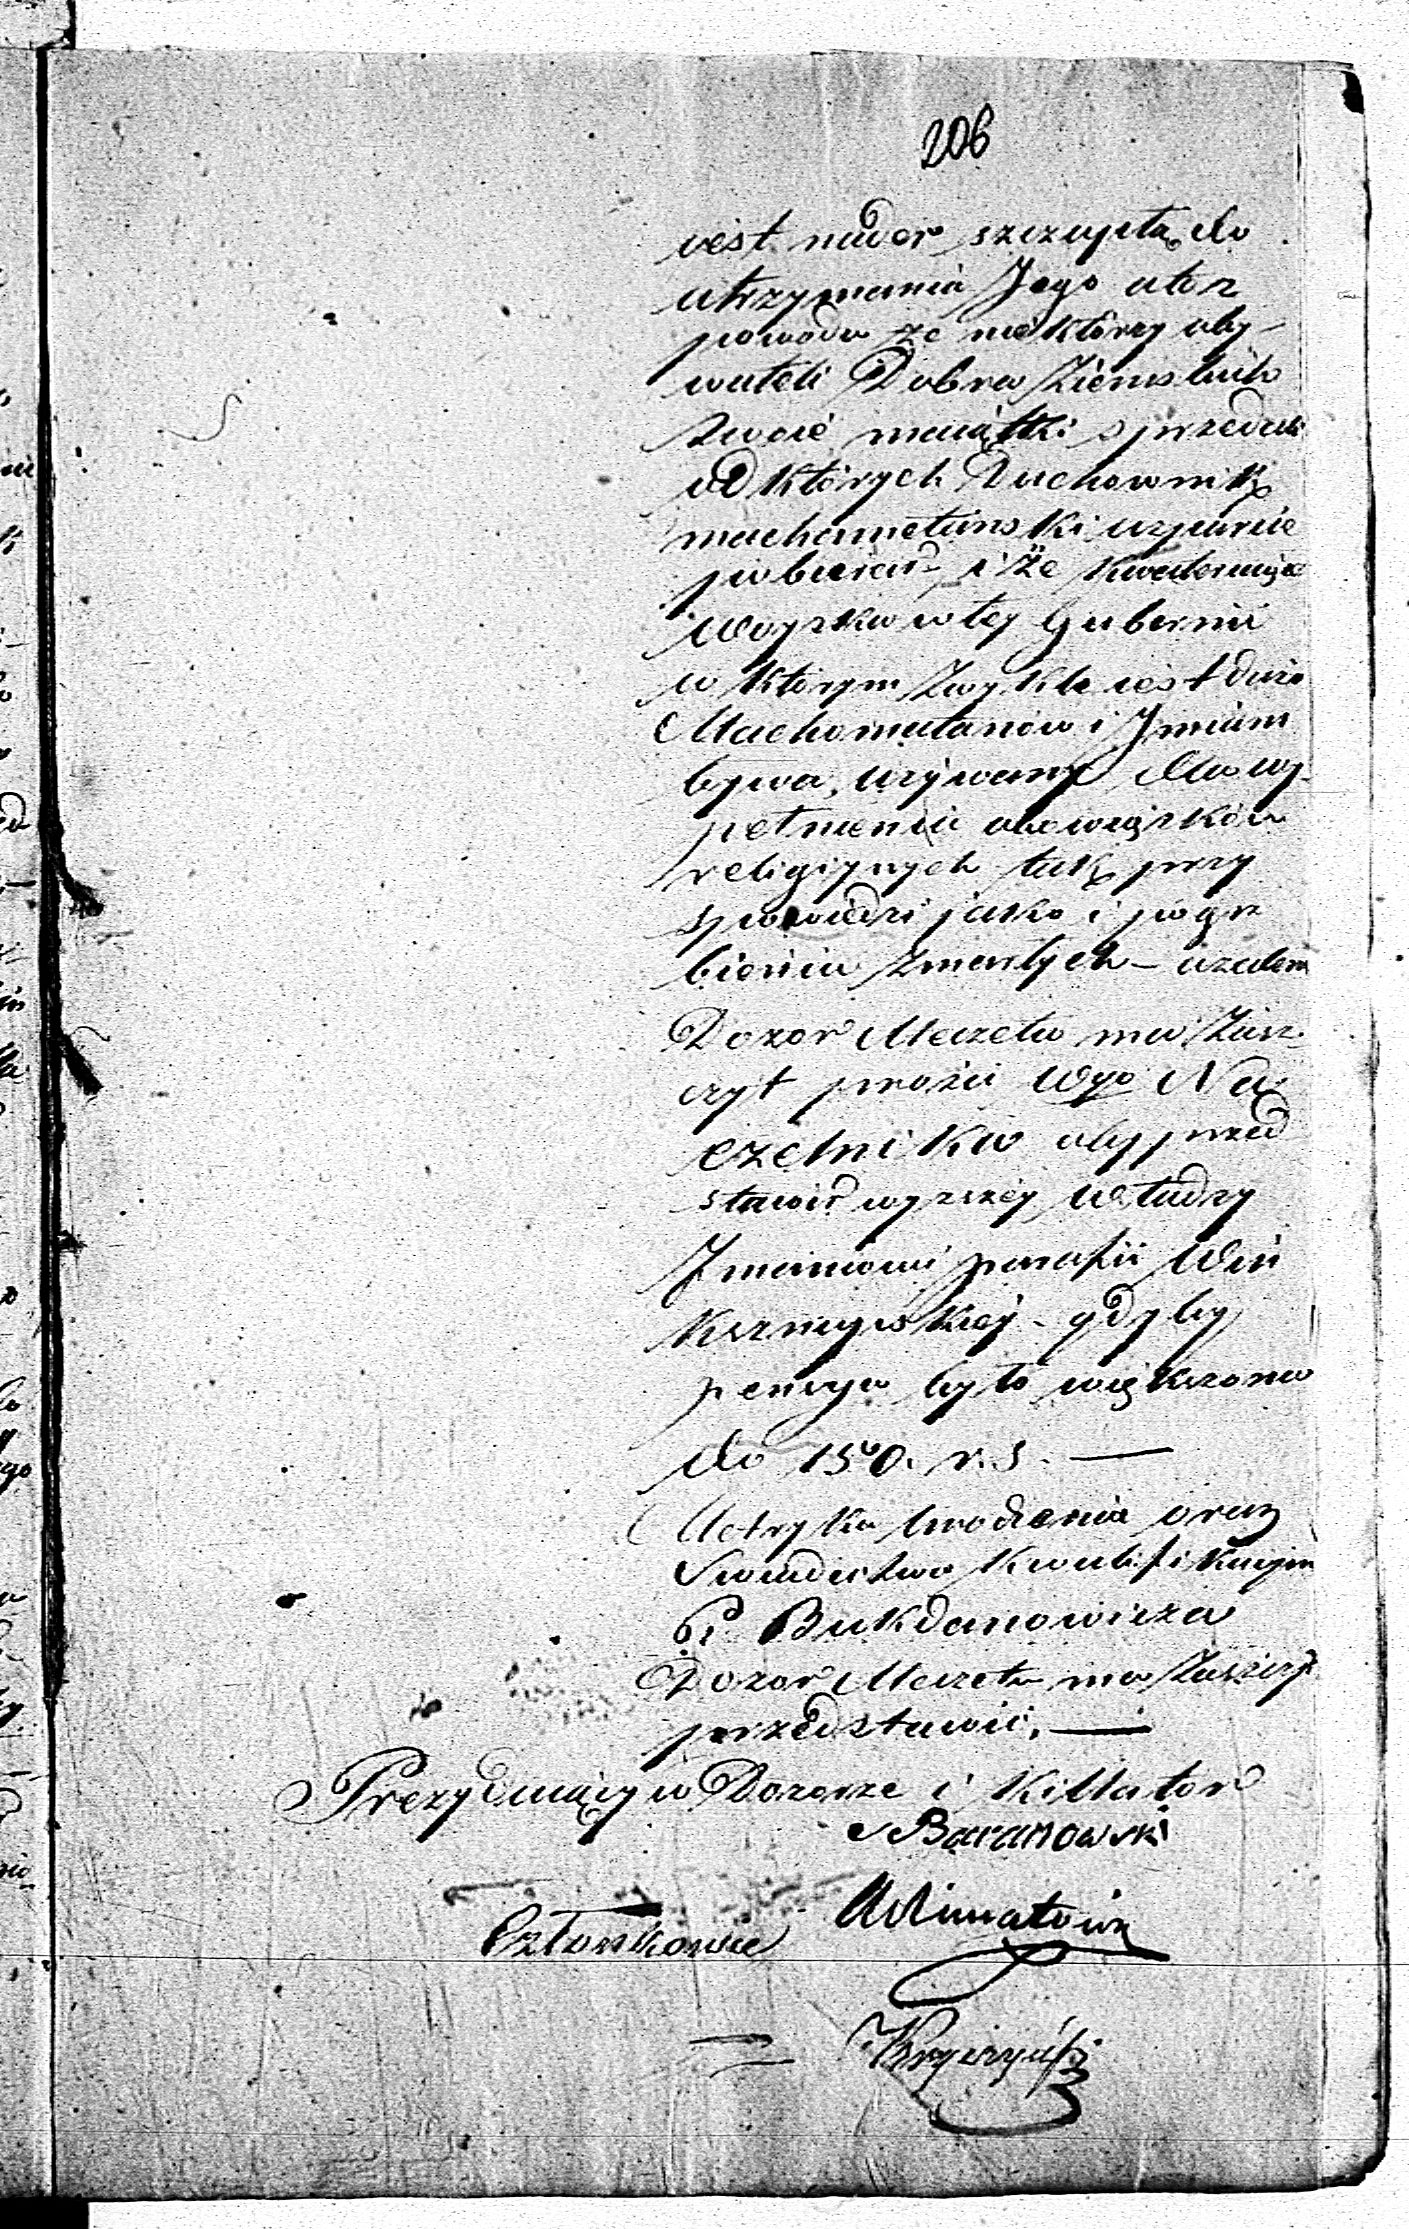 206
iest nader szczupłą do
utrzymania Jego a to z
powodu że niektórzy oby-
wateli Dobra Ziemskich
swoie maiątki sprzedali
od których Duchownik
machometański wsparcie
pobierał i że kwaterujące
Woysko w tey Gubernii
w którym zwykle iest dużo
Machometanów i Jmam
bywa używany dla wy-
pełnienia obowiązków
religijnych tak przy
spowiedzi jako i pogrze
bieniu zmarłych – a zatem
Dozor Meczetu ma zasz-
czyt prosić Wgo Na
czelnika aby przed
stawił wyższéy Władzy
Jmamowi parafii Win
ksznupskiéy – gdyby
pensya było większona
do 150. r. s. —
Metryka urodzenia oraz
Swiadectwo kwalifikacyin
P. Bukdanowicza
Dozor Meczetu ma zaszczyt
przedstawić. —
Prezyduiący w Dozorze i Kollator
Baranowski
Członkowie Achmatowicz
= Kryczyński